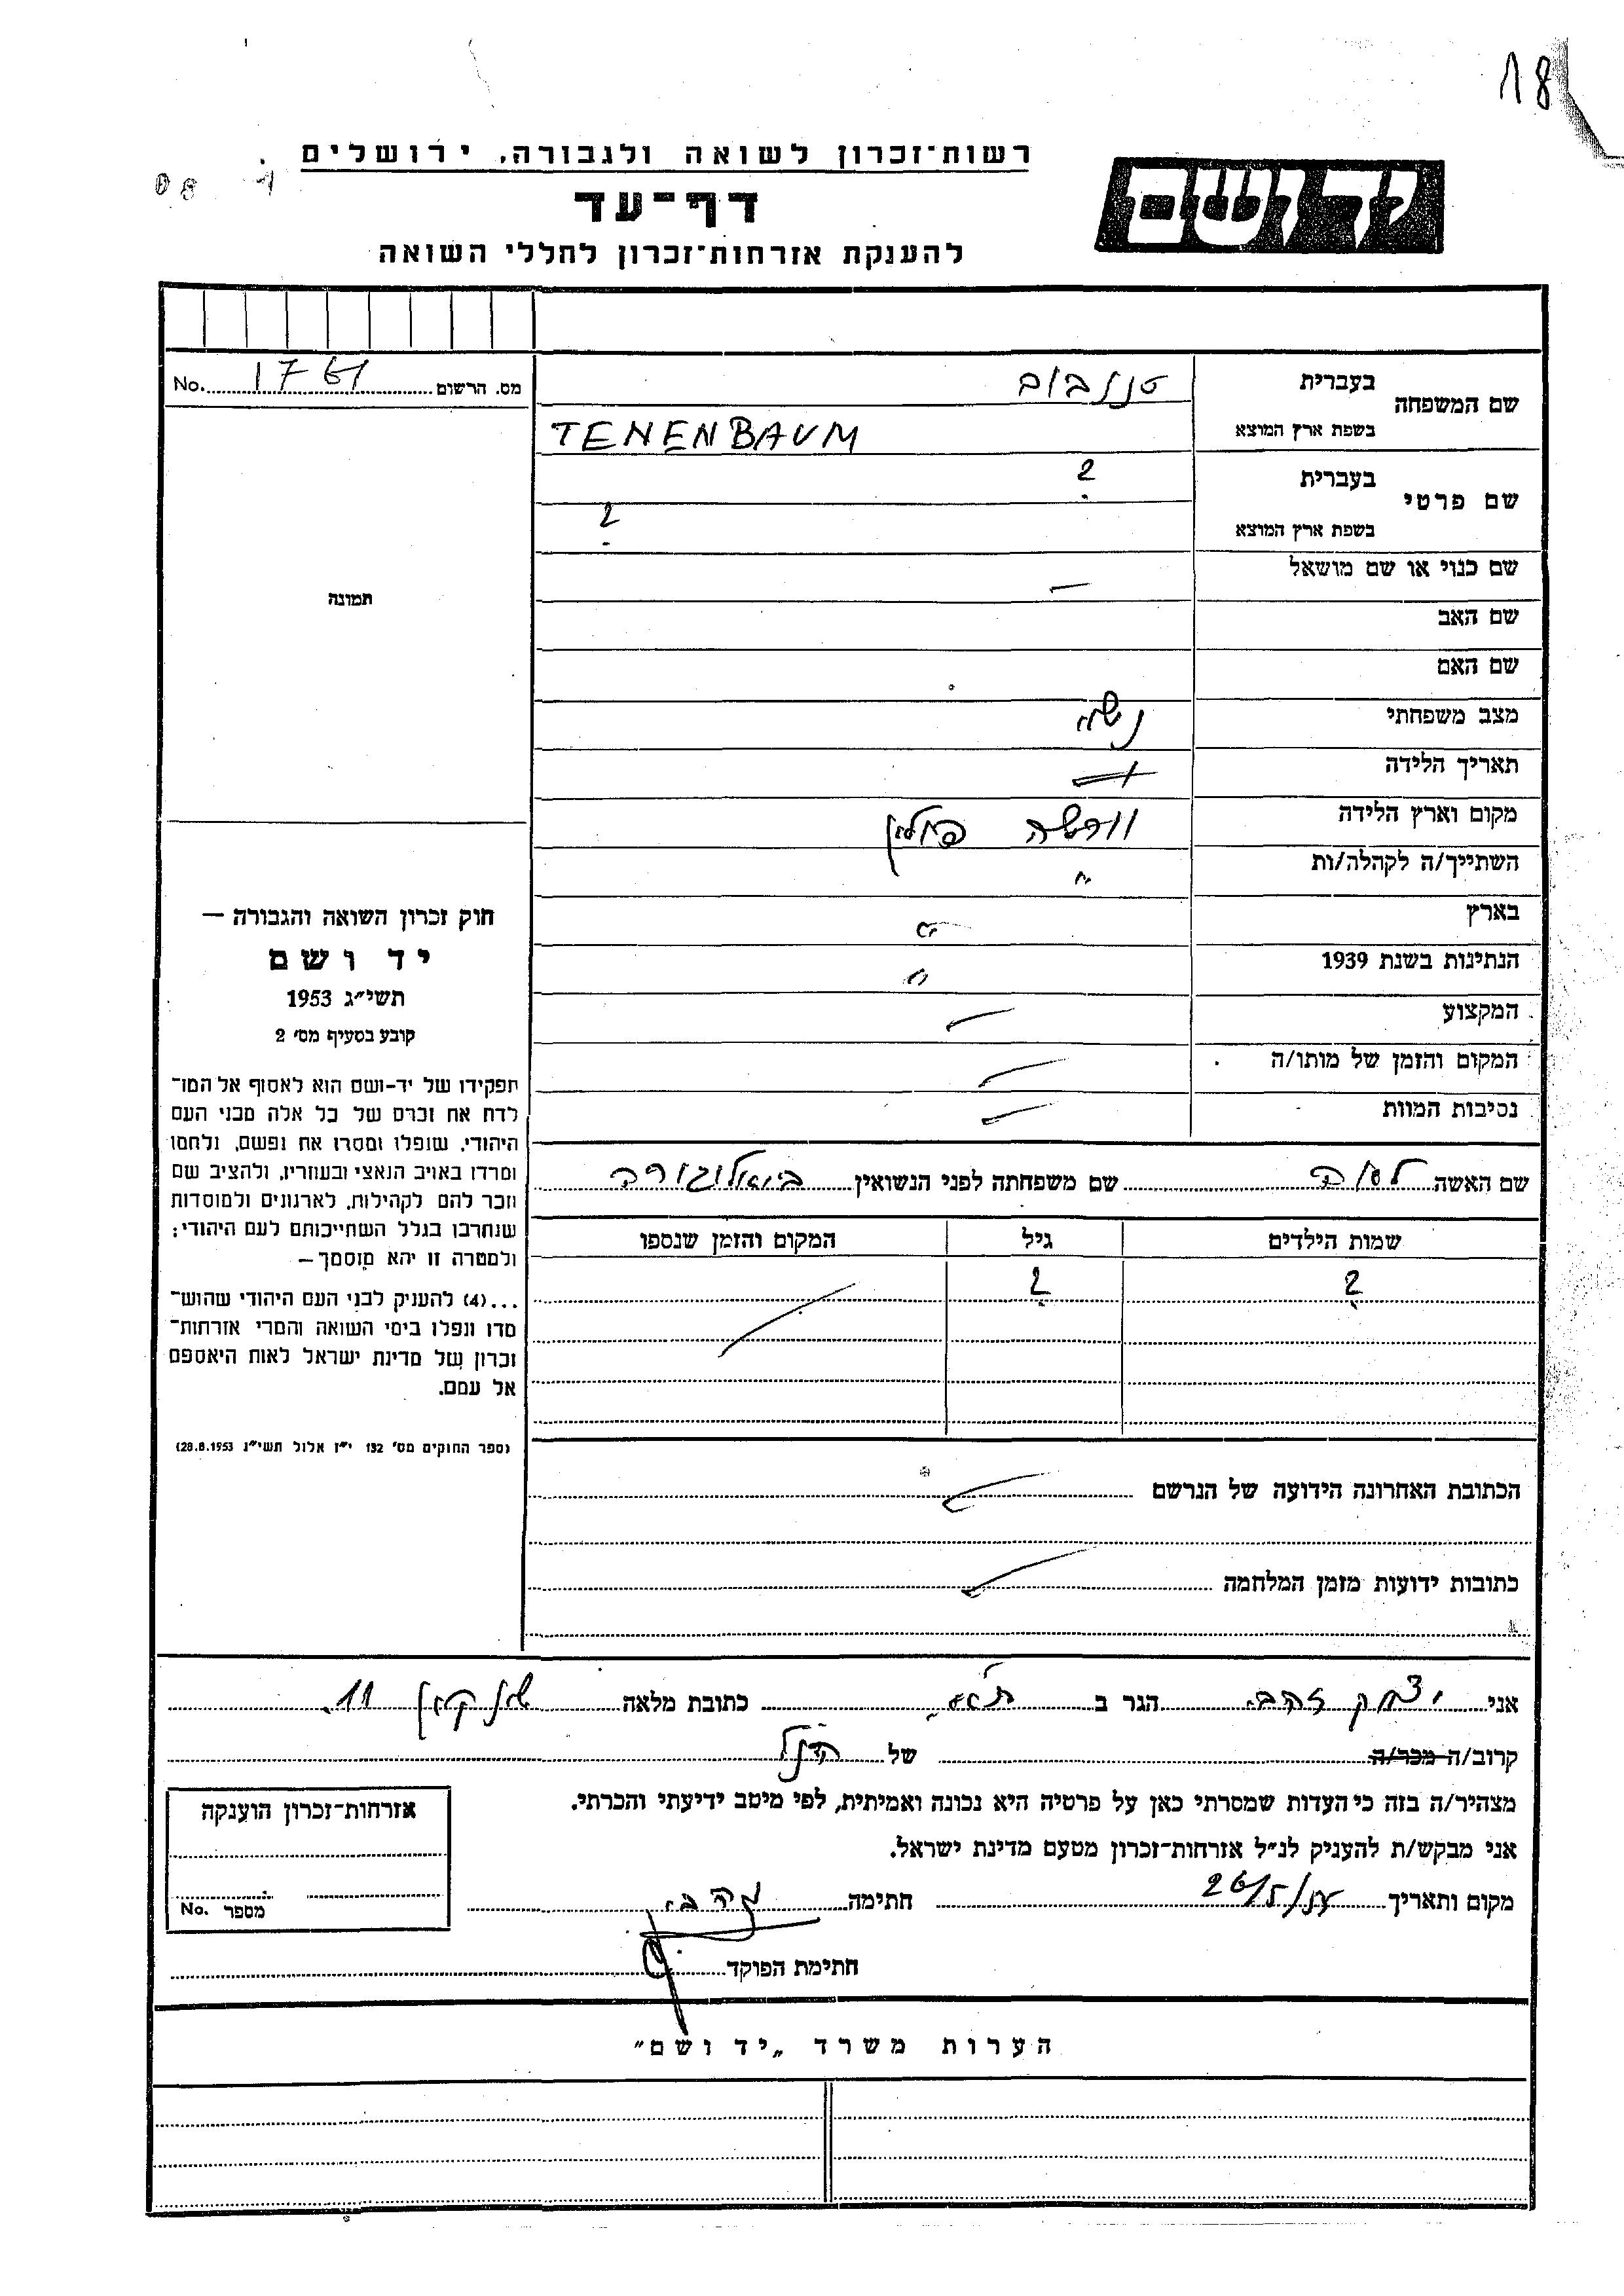 18
רשות־זכרון לשואה ולגבורה, ירושלים
דף־עד
להענקת אזרחות־זכרון לחללי השואה
יד ושם
שם המשפחה
בעברית טננבוים
בשפת ארץ המוצא TENENBAUM
שם פרטי
בעברית ?
בשפת ארץ המוצא ?
שם כנוי או שם מושאל —
שם האב
שם האם
מצב משפחתי נשוי
תאריך הלידה
מקום וארץ הלידה וורשה פולין
השתייך/ה לקהלה/ות "
בארץ "
הנתינות בשנת 1939 "
המקצוע
המקום והזמן של מותו/ה
נסיבות המוות
שם האשה שם משפחתה לפני הנשואין
שמות הילדים גיל המקום והזמן שנספו
? ?
הכתובת האחרונה הידועה של הנרשם
כתובות ידועות מזמן המלחמה
מס. הרשום 1761 No.
תמונה
חוק זכרון השואה והגבורה —
יד ושם
תשי״ג 1953
קובע בסעיף מס׳ 2
תפקידו של יד-ושם הוא לאסוף אל המו־
לדת את זכרם של כל אלה מבני העם
היהודי, שנפלו ומסרו את נפשם, נלחמו
ומרדו באויב הנאצי ובעוזריו, ולהציב שם
וזכר להם לקהילות, לארגונים ולמוסדות
שנחרבו בגלל השתייכותם לעם היהודי;
ולמטרה זו יהא מוסמך —
...(4) להעניק לבני העם היהודי שהוש־
מדו ונפלו בימי השואה והמרי אזרחות־
זכרון של מדינת ישראל לאות היאספם
אל עמם.
(ספר החוקים מס׳ 132 י״ז אלול תשי״ג 28.8.1953)
אני יצחק זהבי הגר ב ת״א כתובת מלאה שינקין 11.
קרוב/ה מכר/ה של הנ״ל
מצהיר/ה בזה כי העדות שמסרתי כאן על פרטיה היא נכונה ואמיתית, לפי מיטב ידיעתי והכרתי.
אני מבקש/ת להעניק לנ״ל אזרחות־זכרון מטעם מדינת ישראל.
מקום ותאריך חתימה זהבי
חתימת הפוקד
אזרחות־זכרון הוענקה
מספר No.
הערות משרד „יד ושם״